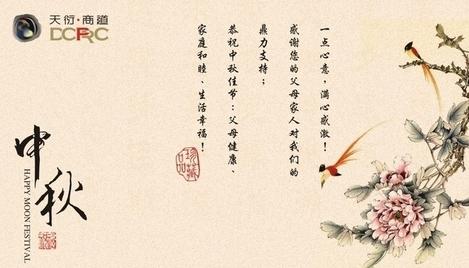 天衍·商道
DCPRC
一点心意，满心感激！
感谢您的父母家人对我们的
鼎力支持；
恭祝中秋佳节：父母健康、
家庭和睦、生活幸福！
珍藏
品
中秋
HAPPY MOON FESTIVAL